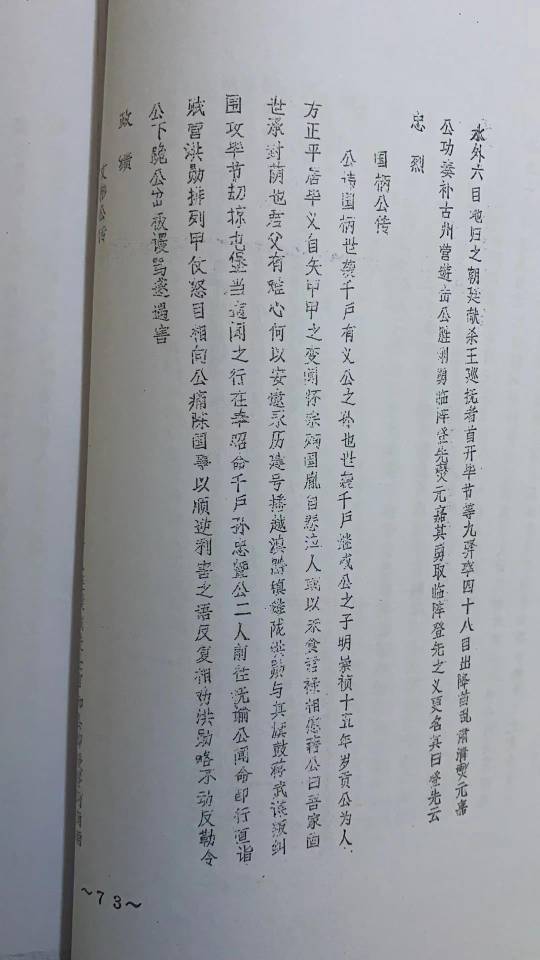 水外六目地归之朝廷献杀王巡抚者首开毕节等九驿率四十八目出降苗乱肃清燮元嘉
公功委补古州营游击公胜利勇临阵登先燮元嘉其勇取临阵登先之义更名其曰登先云
忠烈
国柄公传
公讳国柄世袭千户有义公之孙也世袭千户继成公之子明崇祯十五年岁贡公为人
方正平居毕义自矢甲申之变闻怀宗殉国胤自悲泣人或以不食禄相慰藉公曰吾家面
世承封荫也君父有难心何以安嗷永历建号播越滇黔镇雄陇洪勋与其旗鼓蒋武谋叛纠
围攻毕节劫掠屯堡当道闻之行在奉昭命千户孙忠暨公二人前往洗谕公闻命即行直诣
贼营洪勋排列甲仗怒目相向公痛陈国事以顺逆利害之语反复相劝洪勋略不动反勒令
公下跪公岔极谩骂遂遇害
政绩
公传
~73~